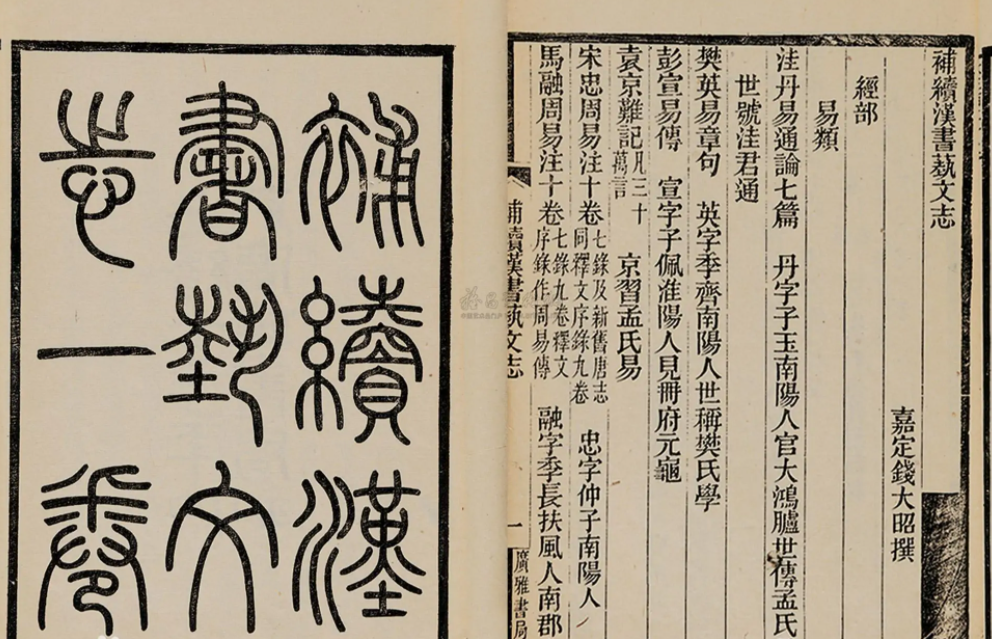 補續漢
書藝文
志一卷
補續漢書藝文志
嘉定錢大昭撰
經部
易類
洼丹易通論七篇 丹字子玉南陽人官大鴻臚世傳孟氏
世號洼君通
樊英易章句 英字季齊南陽人世稱樊氏學
彭宣易傳 宣字子佩淮陽人見冊府元龜
袁京難記凡三十萬言 京習孟氏易
宋忠周易注十卷七錄及新舊唐志同釋文序錄九卷 忠字仲子南陽人
馬融周易注十卷七錄九卷釋文序錄作周易傳 融字季長扶風人南郡
補續漢書藝文志
一
廣雅書局